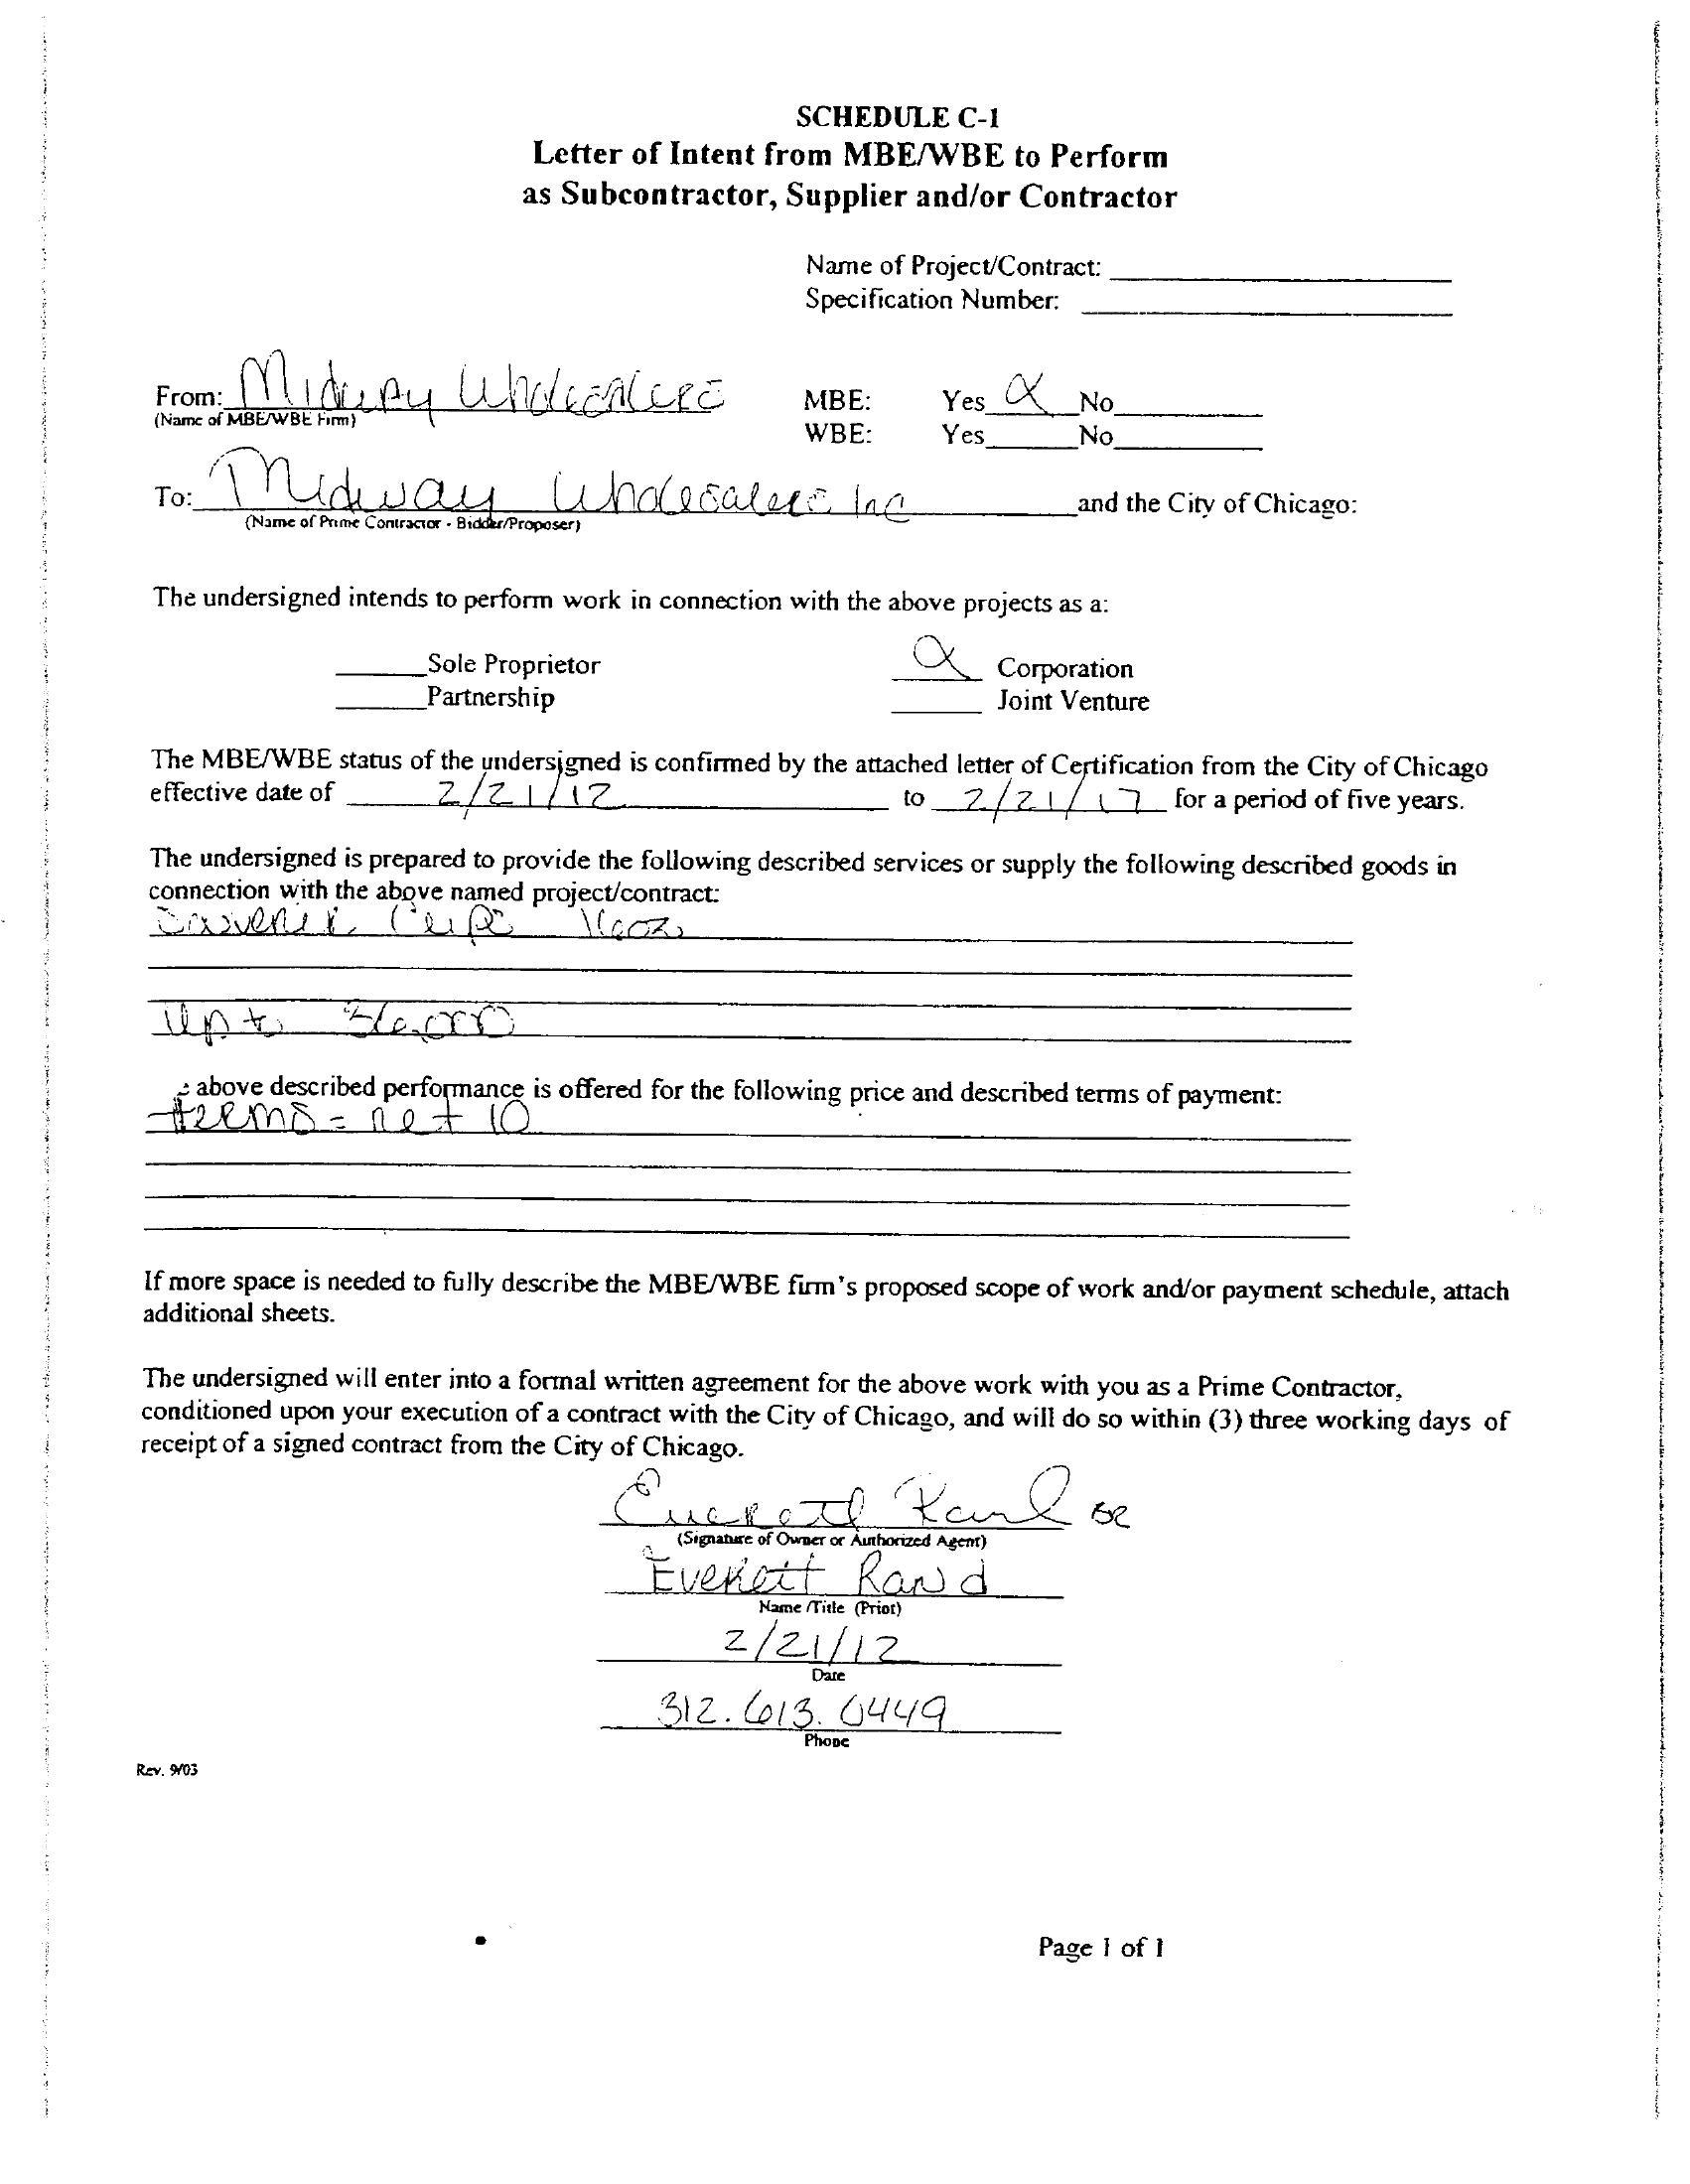 SCHEDULE C-1
Letter of Intent from MBE/WBE to Perform
as Subcontractor, Supplier and/or Contractor
Name of Project/Contract:
Specification Number:
From: Midway Wholesalers MBE: Yes X No
(Name of MBE/WBE Firm) WBE: Yes No
To: Midway Wholesalers Inc and the City of Chicago:
(Name of Prime Contractor - Bidder/Proposer)
The undersigned intends to perform work in connection with the above projects as a:
Sole Proprietor X Corporation
Partnership Joint Venture
The MBE/WBE status of the undersigned is confirmed by the attached letter of Certification from the City of Chicago
effective date of 2/21/12 to 2/21/17 for a period of five years.
The undersigned is prepared to provide the following described services or supply the following described goods in
connection with the above named project/contract:
Cups
up to 36,000
above described performance is offered for the following price and described terms of payment:
terms = net 10
If more space is needed to fully describe the MBE/WBE firm's proposed scope of work and/or payment schedule, attach
additional sheets.
The undersigned will enter into a formal written agreement for the above work with you as a Prime Contractor,
conditioned upon your execution of a contract with the City of Chicago, and will do so within (3) three working days of
receipt of a signed contract from the City of Chicago.
Everett Rand SR
(Signature of Owner or Authorized Agent)
Everett Rand
Name /Title (Print)
2/21/12
Date
312.613.0449
Phone
Rev. 9/03
Page 1 of 1